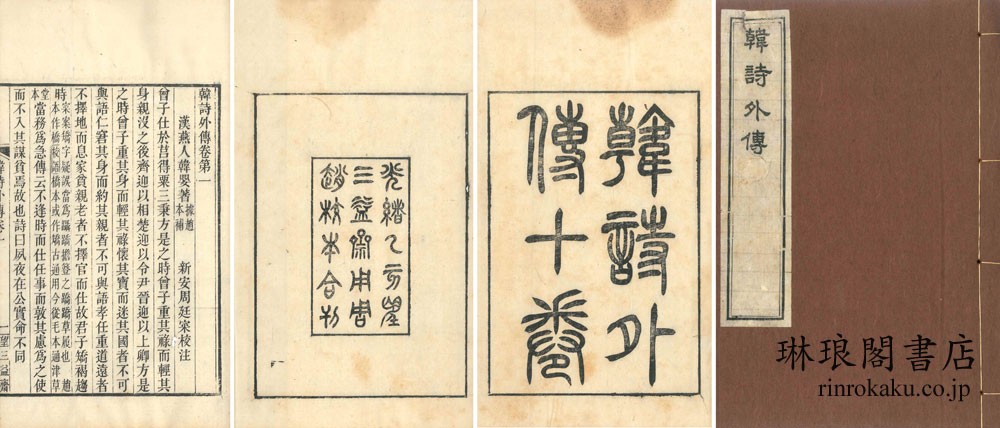 韓詩外傳
琳琅閣書店
rinrokaku.co.jp
韓詩外
傳十卷
光緒乙亥望
三益齋用周
趙校本合刊
韓詩外傳卷第一
漢燕人韓嬰著 據趙本補 新安周廷寀校注
曾子仕於莒得粟三秉方是之時曾子重其祿而輕其
身親沒之後齊迎以相楚迎以令尹晉迎以上卿方是
之時曾子重其身而輕其祿懷其寶而迷其國者不可
與語仁窘其身而約其親者不可與語孝任重道遠者
不擇地而息家貧親老者不擇官而仕故君子矯褐趨
時
當務爲急傳云不逢時而仕任事而敦其慮爲之使
而不入其謀貧焉故也詩曰夙夜在公實命不同
韓詩外傳卷一
一
望三益齋